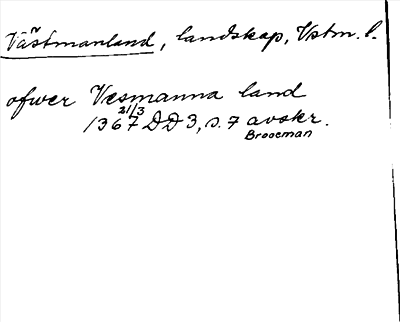 Västmanland, landskap, Vstm. l.
ofwer Vesmanna land
21/3
1367 DD 3, s. 7 avskr.
Brooeman